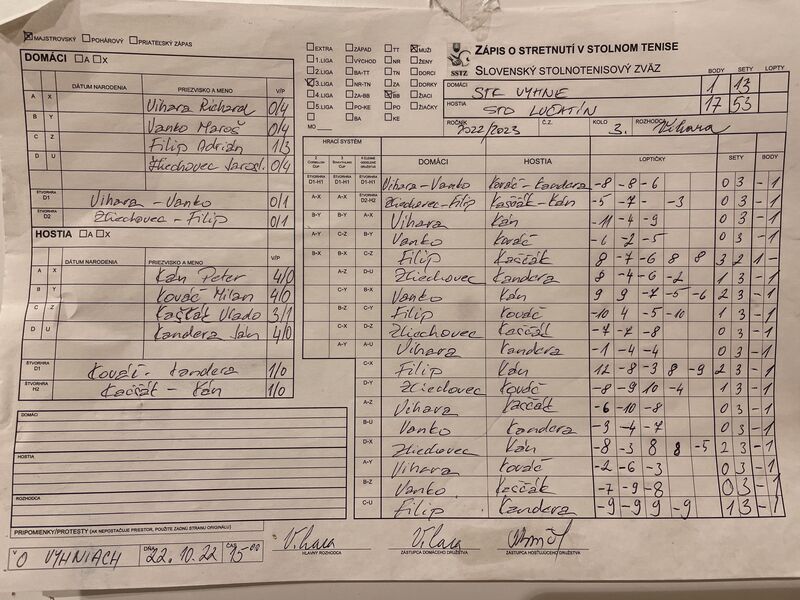 MAJSTROVSKÝ POHÁROVÝ PRIATEĽSKÝ ZÁPAS
DOMÁCI A X
DÁTUM NARODENIA PRIEZVISKO A MENO V/P
A X Vihara Richard 0/4
B Y Vanko Maroš 0/4
C Z Filip Adrián 1/3
D U Zliechovec Jarosl. 0/4
ŠTVORHRA D1 Vihara - Vanko 0/1
ŠTVORHRA D2 Zliechovec - Filip 0/1
HOSTIA A X
DÁTUM NARODENIA PRIEZVISKO A MENO V/P
A X Kán Peter 4/0
B Y Kováč Milan 4/0
C Z Kaščák Vlado 3/1
D U Kandera Ján 4/0
ŠTVORHRA D1 Kováč - Kandera 1/0
ŠTVORHRA H2 Kaščák - Kán 1/0
DOMÁCI
HOSTIA
ROZHODCA
PRIPOMIENKY/PROTESTY (AK NEPOSTAČUJE PRIESTOR, POUŽITE ZADNÚ STRANU ORIGINÁLU)
V O VYHNIACH DŇA 22.10.22 ČAS 15 00
EXTRA ZÁPAD TT MUŽI
1.LIGA VÝCHOD NR ŽENY
2.LIGA BA-TT TN DORCI
3.LIGA NR-TN ZA DORKY
4.LIGA ZA-BB BB ŽIACI
5.LIGA PO-KE PO ŽIAČKY
BA KE
MO
SSTZ
ZÁPIS O STRETNUTÍ V STOLNOM TENISE
SLOVENSKÝ STOLNOTENISOVÝ ZVÄZ
BODY SETY LOPTY
DOMÁCI STK VYHNE 1 13
HOSTIA STO LUČATÍN 17 53
ROČNÍK 2022/2023 Č.Z. KOLO 3. ROZHODCA Vihara
HRACÍ SYSTÉM
DOMÁCI HOSTIA LOPTIČKY SETY BODY
D1-H1 D1-H1 D1-H1 Vihara - Vanko Kováč - Kandera -8 -8 -6 0 3 -1
A-X A-X D2-H2 Zliechovec - Filip Kaščák - Kán -5 -7 - -3 0 3 -1
B-Y B-Y A-X Vihara Kán -11 -4 -9 0 3 -1
A-Y C-Z B-Y Vanko Kováč -6 -2 -5 0 3 -1
B-X B-X C-Z Filip Kaščák 8 -7 -6 8 8 3 2 1 -
A-Z D-U Zliechovec Kandera 8 -4 -6 -2 1 3 -1
C-Y B-X Vanko Kán 9 9 -7 -5 -6 2 3 -1
B-Z C-Y Filip Kováč -10 4 -5 -10 1 3 -1
C-X D-Z Zliechovec Kaščák -7 -7 -8 0 3 -1
A-Y A-U Vihara Kandera -1 -4 -4 0 3 -1
C-X Filip Kán 12 -8 -3 8 -9 2 3 -1
D-Y Zliechovec Kováč -8 -9 10 -4 1 3 -1
A-Z Vihara Kaščák -6 -10 -8 0 3 -1
B-U Vanko Kandera -9 -4 -7 0 3 -1
D-X Zliechovec Kán -8 -3 8 8 -5 2 3 -1
A-Y Vihara Kováč -2 -6 -3 0 3 -1
B-Z Vanko Kaščák -7 -9 -8 0 3 -1
C-U Filip Kandera -9 -9 9 -9 1 3 -1
Vihara Vihara
HLAVNÝ ROZHODCA ZÁSTUPCA DOMÁCEHO DRUŽSTVA ZÁSTUPCA HOSŤUJÚCEHO DRUŽSTVA